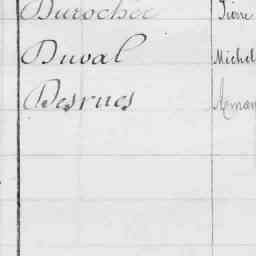 Durocher Pierre
Duval Michel
Desrues Arman